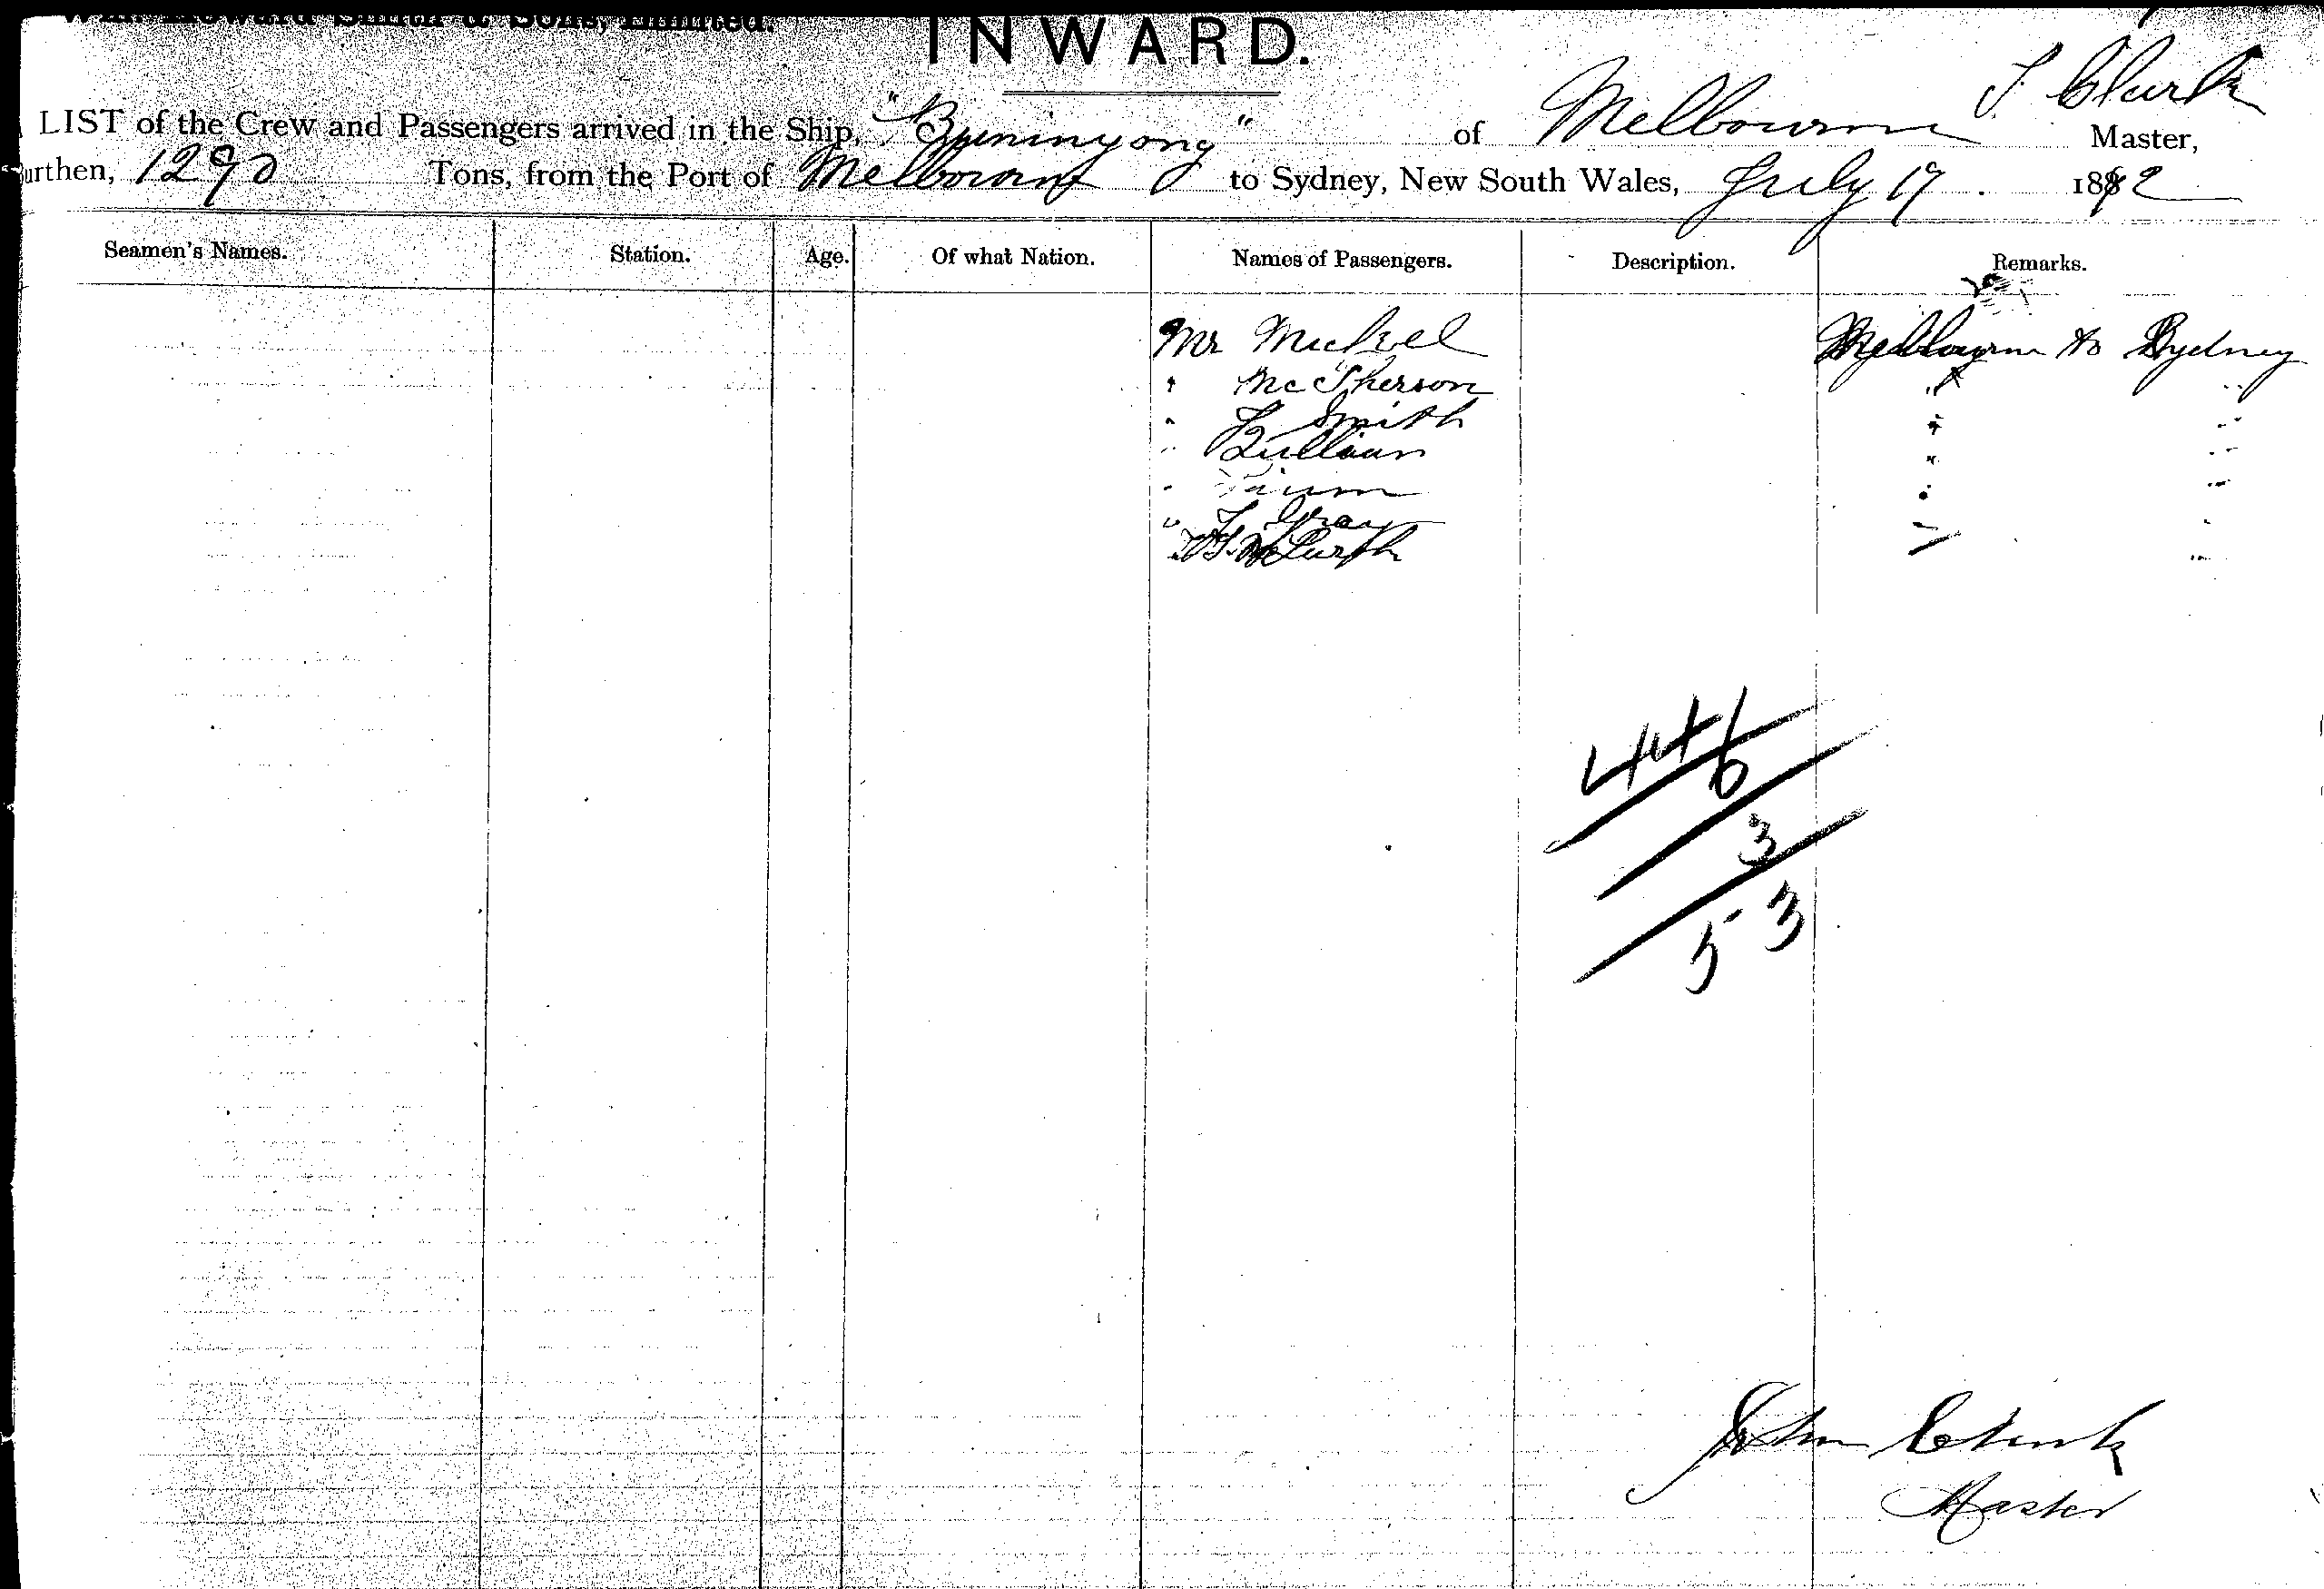 Wm. Howard Smith & Sons, Limited.
INWARD.
LIST of the Crew and Passengers arrived in the Ship, "Buninyong" of Melbourne J Clark Master,
urthen, 1290 Tons, from the Port of Melbourne to Sydney, New South Wales, July 19. 1892
Seamen's Names. Station. Age. Of what Nation. Names of Passengers. Description. Remarks.
Mr Melbourne to Sydney
" McPherson " "
" Smith " "
" " "
" " "
" Gray " "
" "
6
3
53
John Clark
Master